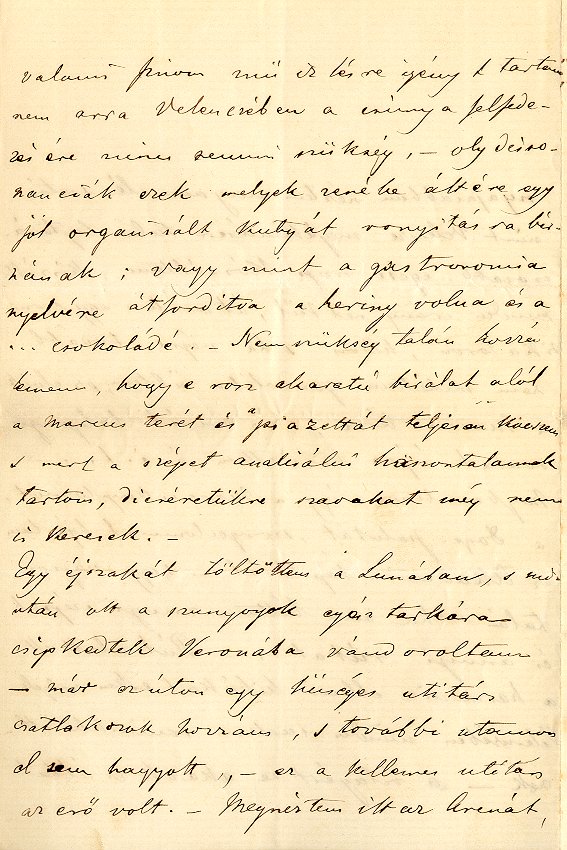 valami finom műízlésre igényt tartani,
nem arra Velenczében a csúnya felfede-
zésére nincs semmi szükség, – oly disso-
nanciák ezek melyek zenébe áttéve egy
jól organisált kutyát vonyitásra bír-
nának; vagy mint a gastronomia
nyelvére átfordítva a hering volna és a
... csokoládé. – Nem szükség talán hozzá
tennem, hogy e rosz akaratú birálat alól
a Marcus terét és a piazettát teljesen kiveszem
s mert a szépet analisálni haszontalannak
tartom, dicséretükre szavakat még nem
is keresek. –
Egy éjszakát töltöttem a Lunában, s mi-
után ott a szunyogok egész tarkára
csipkedtek Veronába vándoroltam
– már ez úton egy hűséges utitárs
csatlakozok hozzám, s további utamon
el sem hagyott, – ez a kellemes utitárs
az eső volt. – Megnéztem itt az Arenát,